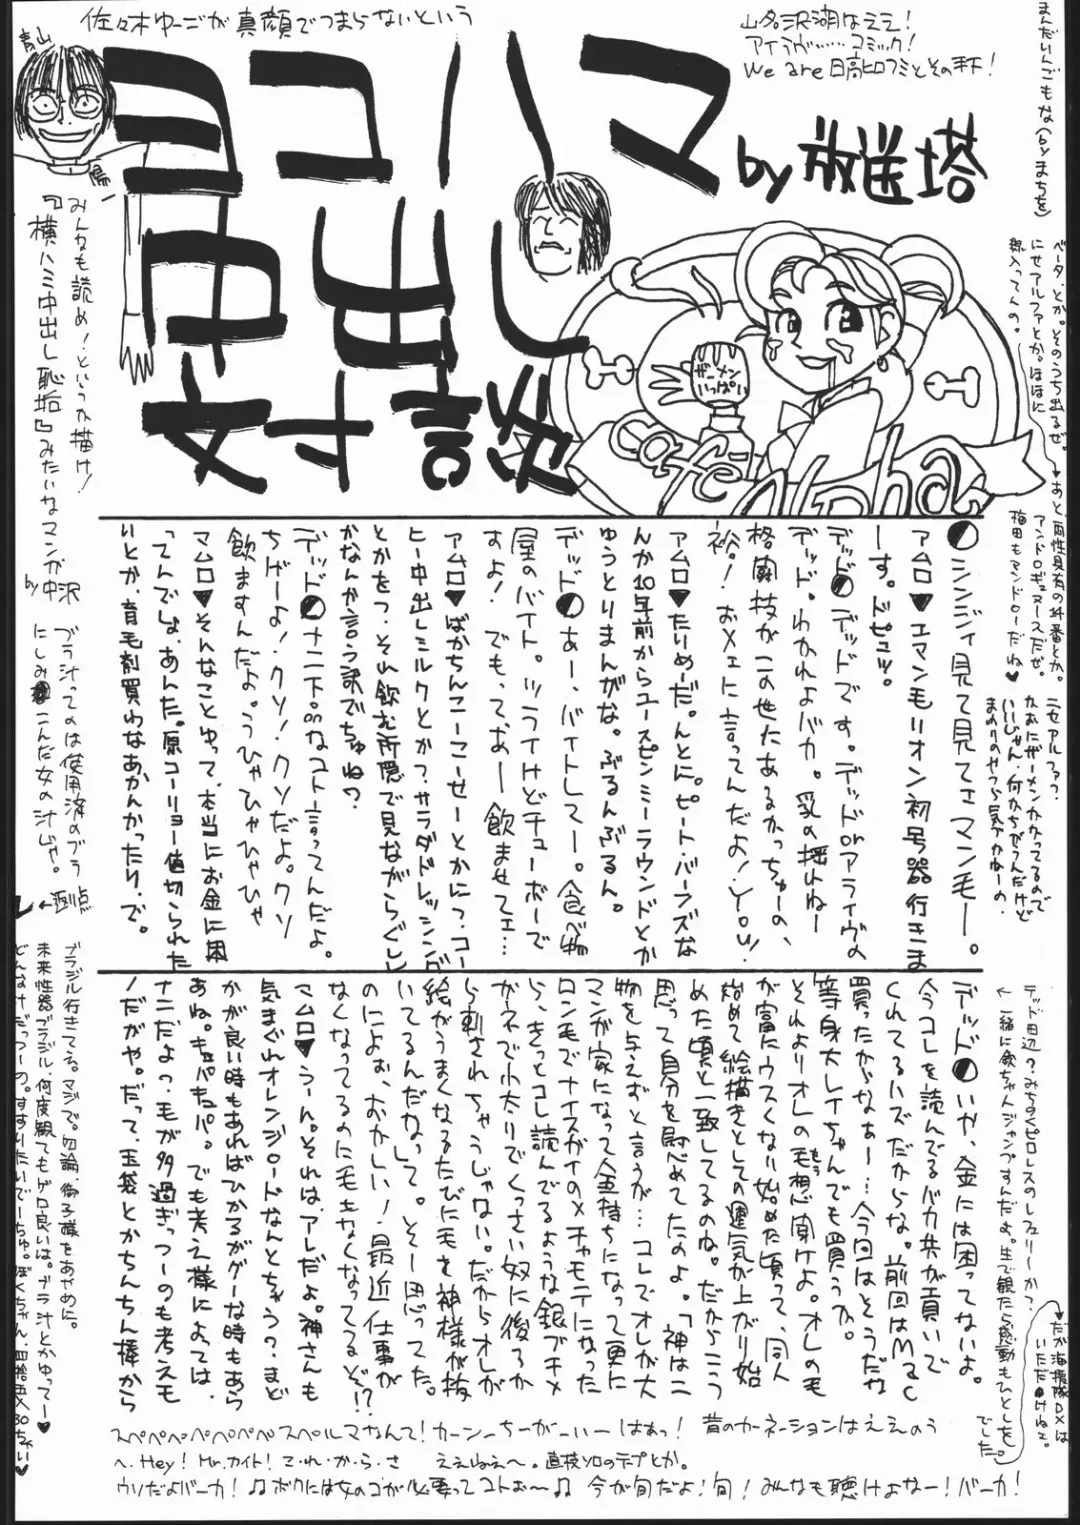 佐々木ゆーごが真顔でつまらないという
ヨコハマ
中出し
対談
by 放送塔
山名沢湖はええ!
アイラヴ……コミック!
We are 日高ヒロフミとその手下!
まんだいんごもな(byまちを)
ベータ、とか。そのうち出るぜ。
にせアルファとか。ほほほに
あと、両性具有の14番とか。
アンドロギュヌースだぜ。
梅田もマンドローだね♥
ニセアルファ?
かおにザーメンかかってるので
いいじゃん、何かちがうんだけど
青山
みんなも読め!というか描け!
『横ハミ中出し恥垢』みたいなマンガ
by 中沢
ブラ汁ってのは使用済のブラ
にしみこんだ女の汁じゃ。
ザーメンいっぱい
cafe Alpha
●シンジィ見て見てェマン毛ー。
アムロ♥エマン毛リオン初号器行きま
ーす。ドピュッ。
デッド●デッドです。デッドorアライヴの
デッド。わかれよバカ。乳の揺れね
格闘技がこの世たあるかっちゅーの、
裕!おメェに言ってんだよ!You!
アムロ♥たりめーだ。んとに。ピート・バーンズな
んか10年前からユースピンミーラウンドとか
ゆうとりまんがな。ぶるんぶるん。
デッド●あー、バイトしてー。食べ物
屋のバイト。ツライけどチューボーで
すよ!でもって、あー飲ませてェ…
アムロ♥ばかちんこーこーせーとかにつ、コー
ヒー中出しミルクとかつ、サラダドレッシング
とかをつ、それ飲む所隠で見ながらぐしし
かなんか言う訳でちゅね?
デッド●ナニ下品なコト言ってんだよ。
ちげーよ!クソ!クソだよ。クソ
飲ますんだよ。うひゃひゃひゃひゃ
マムロ♥そんなことゆって、本当にお金に困
ってんでしょあんた。原コーリョー値切られた
いとか、育毛剤買わなあかんかったり、で。
デッド●いや、金には困ってないよ。
今うコレを読んでるバカ共が貢いで
くれてるハズだからな。前回はMac
買ったからなぁー…今回はそうだな
等身大レイちゃんでも買うか。
それよりオレの毛想聞けよ。オレの毛
が富にウスくない始めた頃って、同人
始めて絵描きとしての運気が上がり始
めた頃と一致してるのね。だからこう
思って自分を慰めてたのよ。「神は二
物を与えずと言うが…コレでオレが大
マンガ家になって金持ちになって更に
ロン毛でナイスガイのメチャモテになった
ら、きっとコレ読んでるような銀ブチメ
ガネで小太りでくっさい奴に後ろか
ら刺されちゃうじゃない。だからオレが
絵がうまくなるたびに毛を神様が抜
いてるんだなって。そー思ってた。
のによぉ、おかしい!最近仕事が
なくなってるのに毛もなくなってるぞ!?
マムロ♥うーん。それは、アレだよ。神さんも
気まぐれオレンジロードなんとちゃう?まど
かが良い時もあればひかるがグーな時もあら
あね。キュパキュパ。でも考え様によっては、
ナニだよっ。毛が多過ぎっつーのも考えモ
ノだがや。だって、玉袋とかちんちん棒から
ブラジル行きてえ。マジで。勿論、御子様をあやめに。
未来性器ブラジル、何度観てもゲロ良いは。ブラ汁とかゆってー♥
デッド田辺?みちのくプロレスのレフェリーか?
一緒に飲ちゃんジャンプすんだよ。生で観たら感動もひとしおでした。
だが海援隊DXはいただけねえ。
スペペペペペペペスペルマなんて!カーンーちーがーいーはあっ!昔のカーネーションはええのう
へ、Hey! Mr.カイト!こ・れ・か・ら・さ ええねえ〜。直枝ソロのテープとか。
ウソだよバーカ!♫ボクには女のコが必要ってコトお〜♫今が旬だよ!旬!みんなも聴けよなー!バーカ!